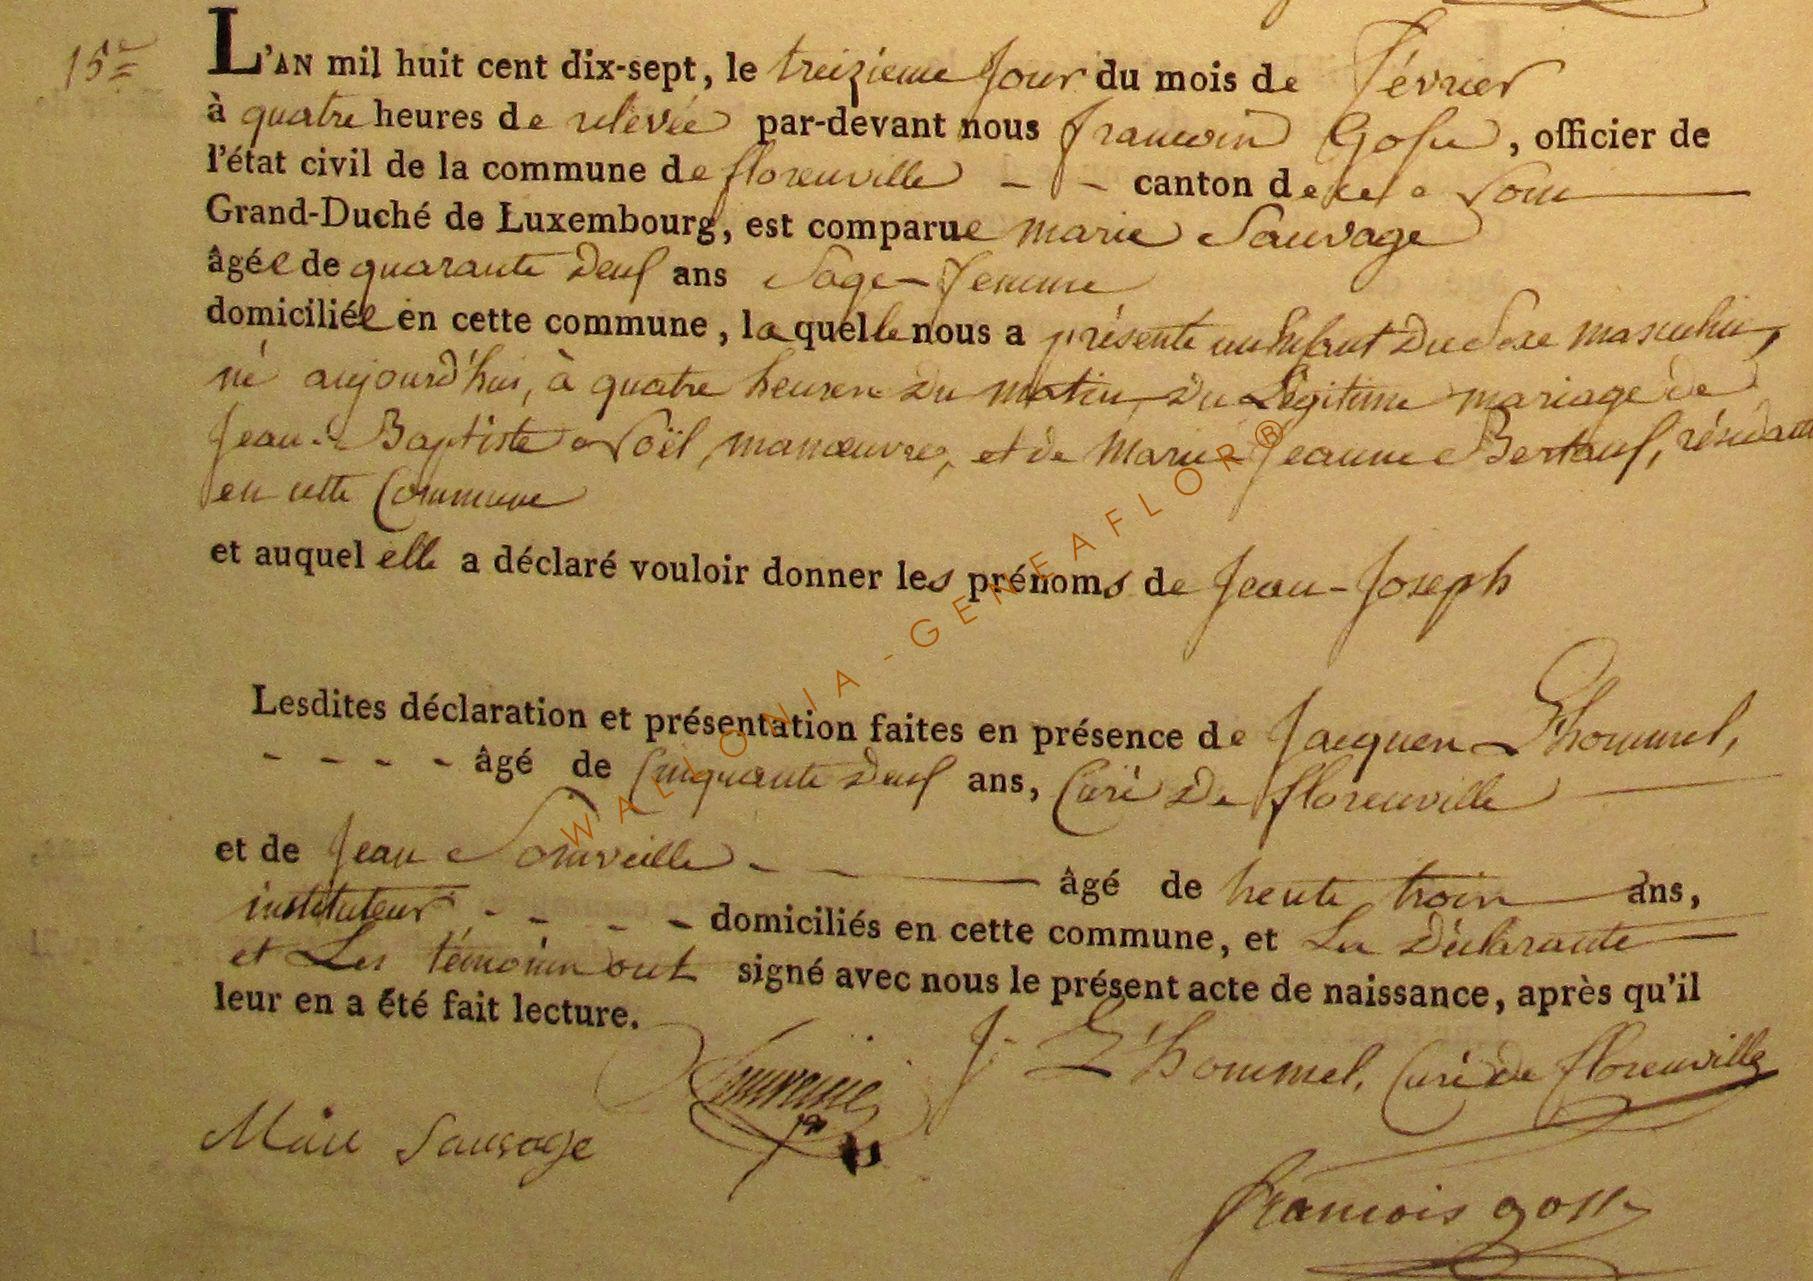 15e
L'AN mil huit cent dix-sept, le treizieme Jour du mois de Février
à quatre heures de relevée par-devant nous francois Gosse, officier de
l'état civil de la commune de florenville - - canton de
Grand-Duché de Luxembourg, est comparue marie Sauvage
âgée de quarante deux ans Sage-femme
domiciliée en cette commune, laquelle nous a présenté un Enfant Du Sexe masculin,
né aujourd'hui, à quatre heures du matin, Du Légitime mariage de
Jean-Baptiste Noël, manœuvre, et de Marie Jeanne Bertaux, résidants
en cette Commune
et auquel elle a déclaré vouloir donner les prénoms de Jean-Joseph
Lesdites déclaration et présentation faites en présence de Jacques Lhommel,
- - - - âgé de Cinquante deux ans, Curé De florenville
et de Jean Somveille - - âgé de trente trois ans,
instituteur - - - - domiciliés en cette commune, et La Déclarante
et Les témoins ont signé avec nous le présent acte de naissance, après qu'il
leur en a été fait lecture.
J. L'hommel, Curé de florenville
Marie Sauvage
francois gosse
WALLONIA-GENEAFLOR®